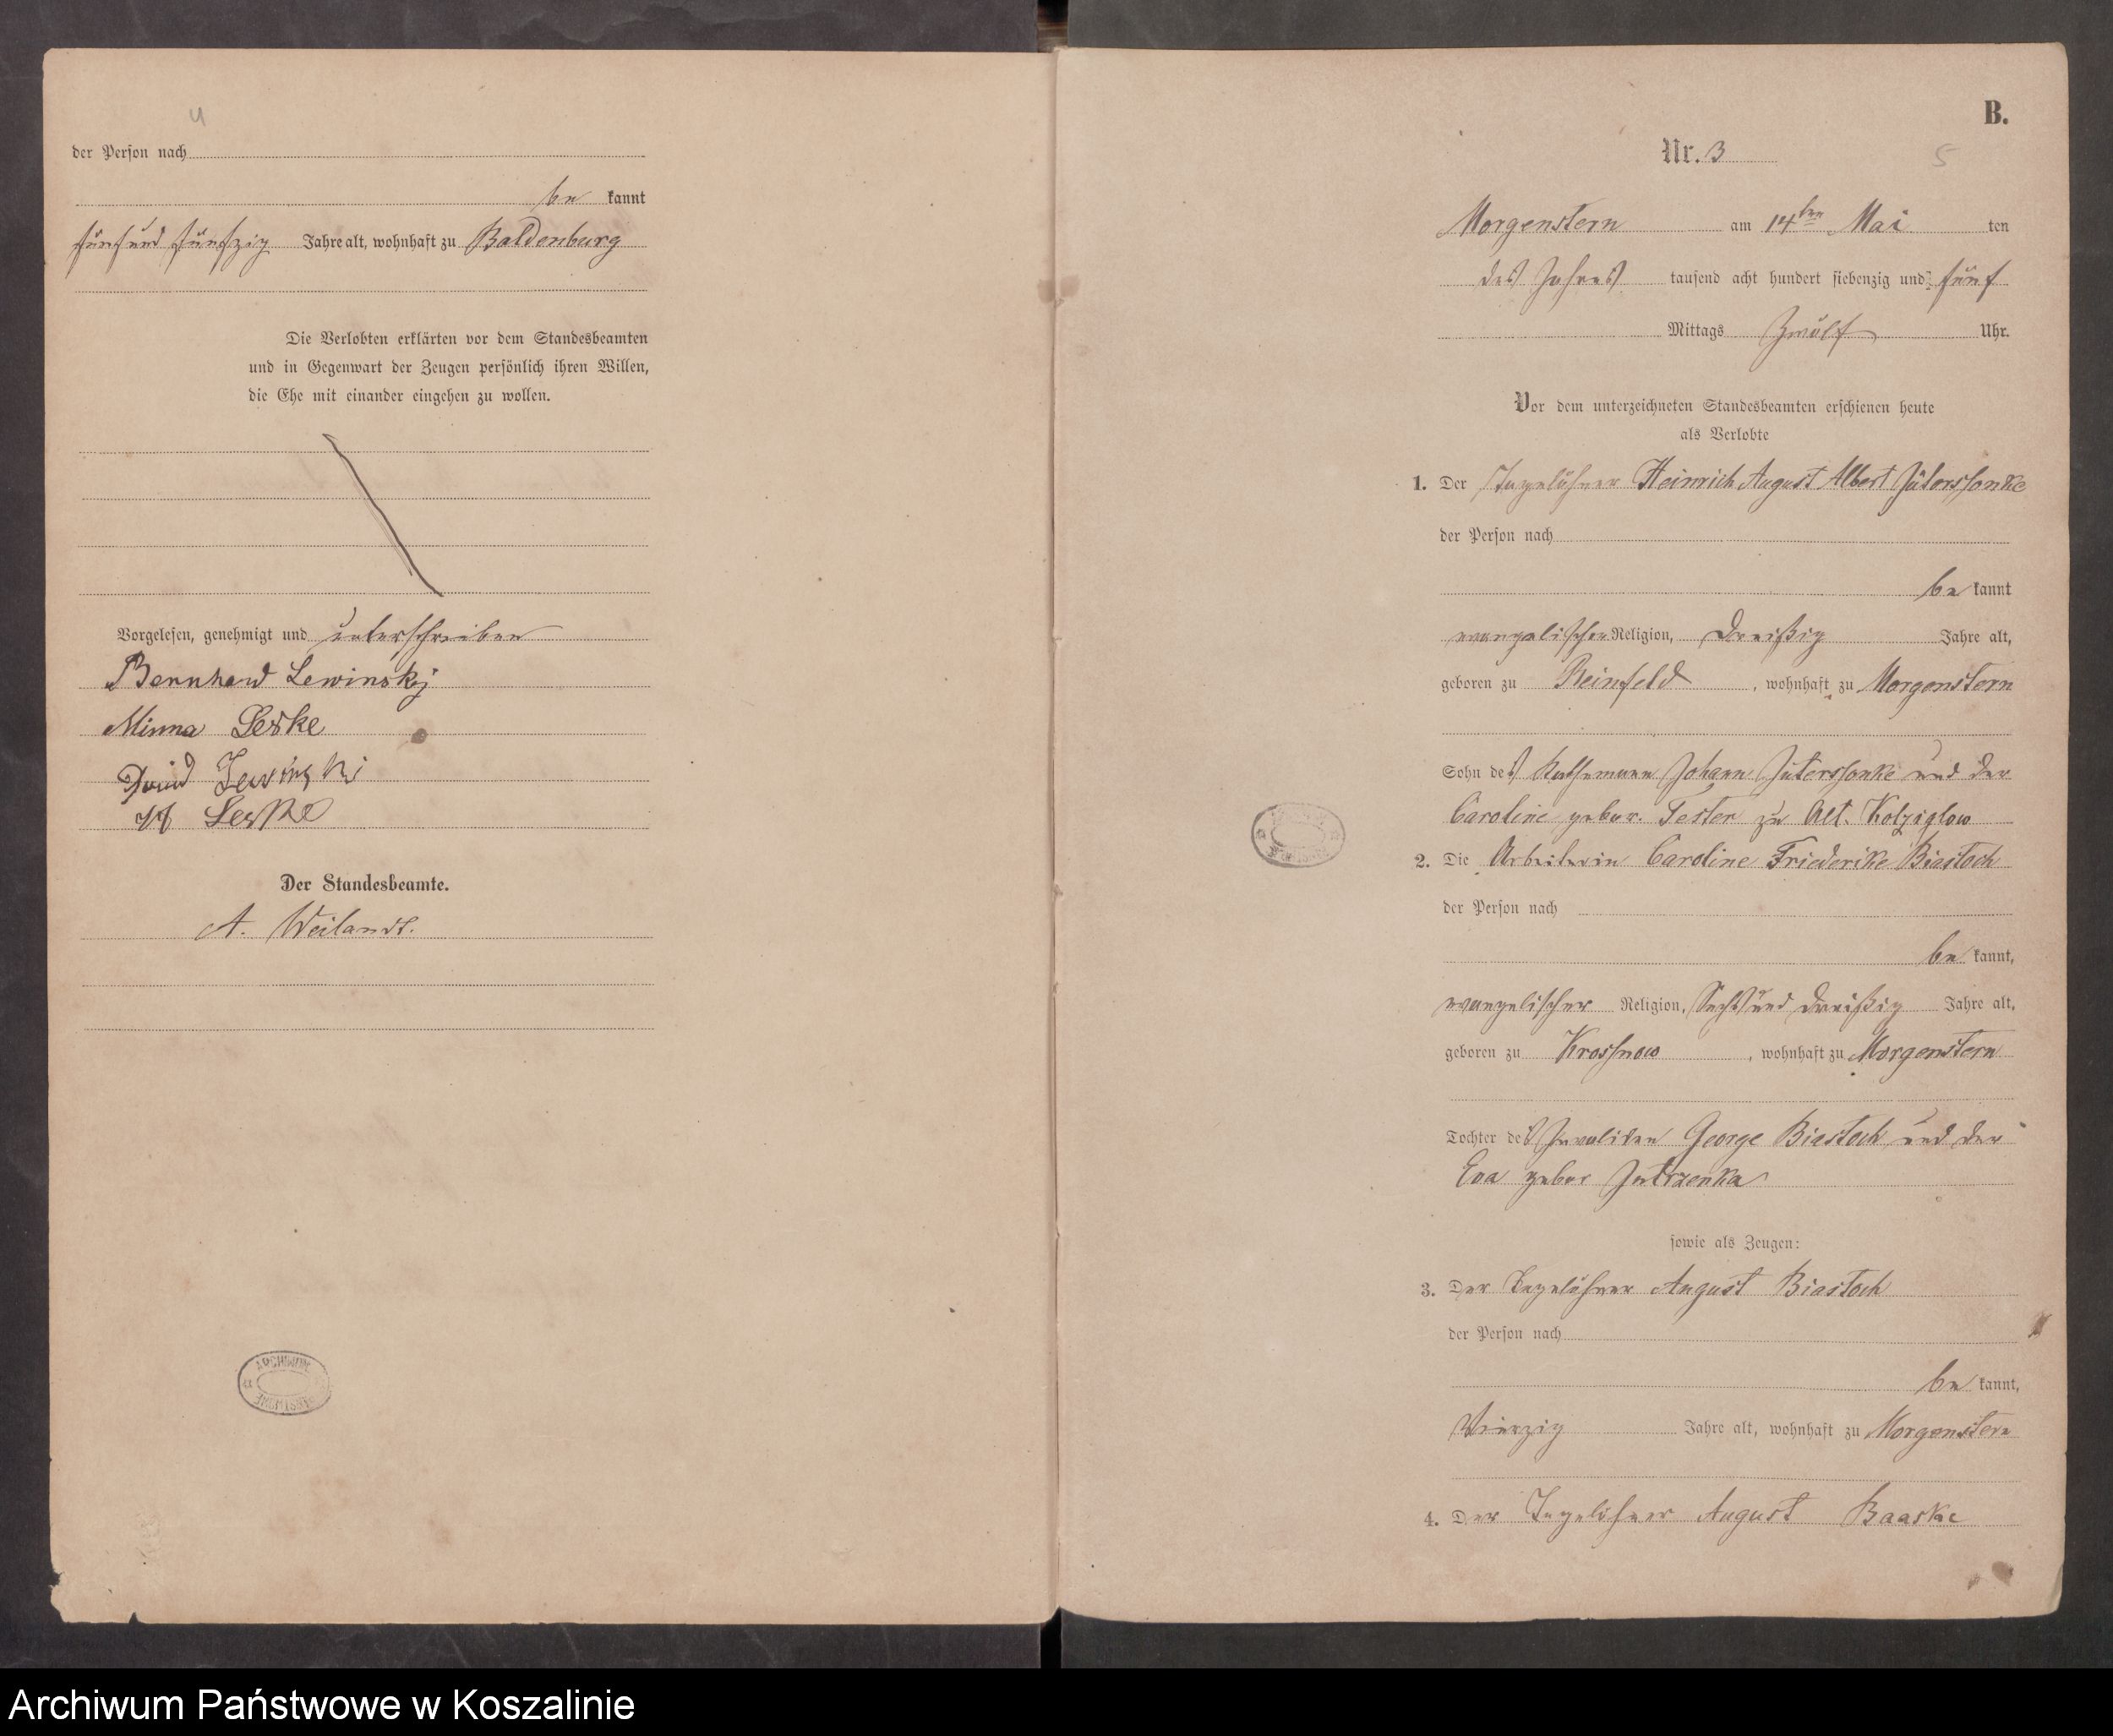 4
der Person nach
be kannt
fünf und fünfzig Jahre alt, wohnhaft zu Baldenburg
Die Verlobten erklärten vor dem Standesbeamten
und in Gegenwart der Zeugen persönlich ihren Willen,
die Ehe mit einander eingehen zu wollen.
Vorgelesen, genehmigt und unterschrieben
Bernhard Lewinskÿ
Minna Leske
David Lewinski
Leske
Der Standesbeamte.
A. Weilandt.
ARCHIWUM
B.
Nr. 3
5
Morgenstern am 14ten Mai ten
des Jahres tausend acht hundert siebenzig und fünf
Mittags Zwölf Uhr.
Vor dem unterzeichneten Standesbeamten erschienen heute
als Verlobte
1. Der Tagelöhner Heinrich August Albert Jüterssonke
der Person nach
be kannt
evangelischer Religion, Dreißig Jahre alt,
geboren zu Reinfeld, wohnhaft zu Morgenstern
Sohn des Kathemann Johann Jüterssonke und der
Caroline gebor. Tester zu Alt. Kolziglow
2. Die Arbeiterin Caroline Friederike Biastoch
der Person nach
be kannt,
evangelischer Religion, Sechs und dreißig Jahre alt,
geboren zu Krossnow, wohnhaft zu Morgenstern
Tochter des Invaliden George Biastoch und der
Eva gebor Jutrzenka
sowie als Zeugen:
3. Der Tagelöhner August Biastoch
der Person nach
be kannt,
Vierzig Jahre alt, wohnhaft zu Morgenstern
4. Der Tagelöhner August Baaske
Archiwum Państwowe w Koszalinie